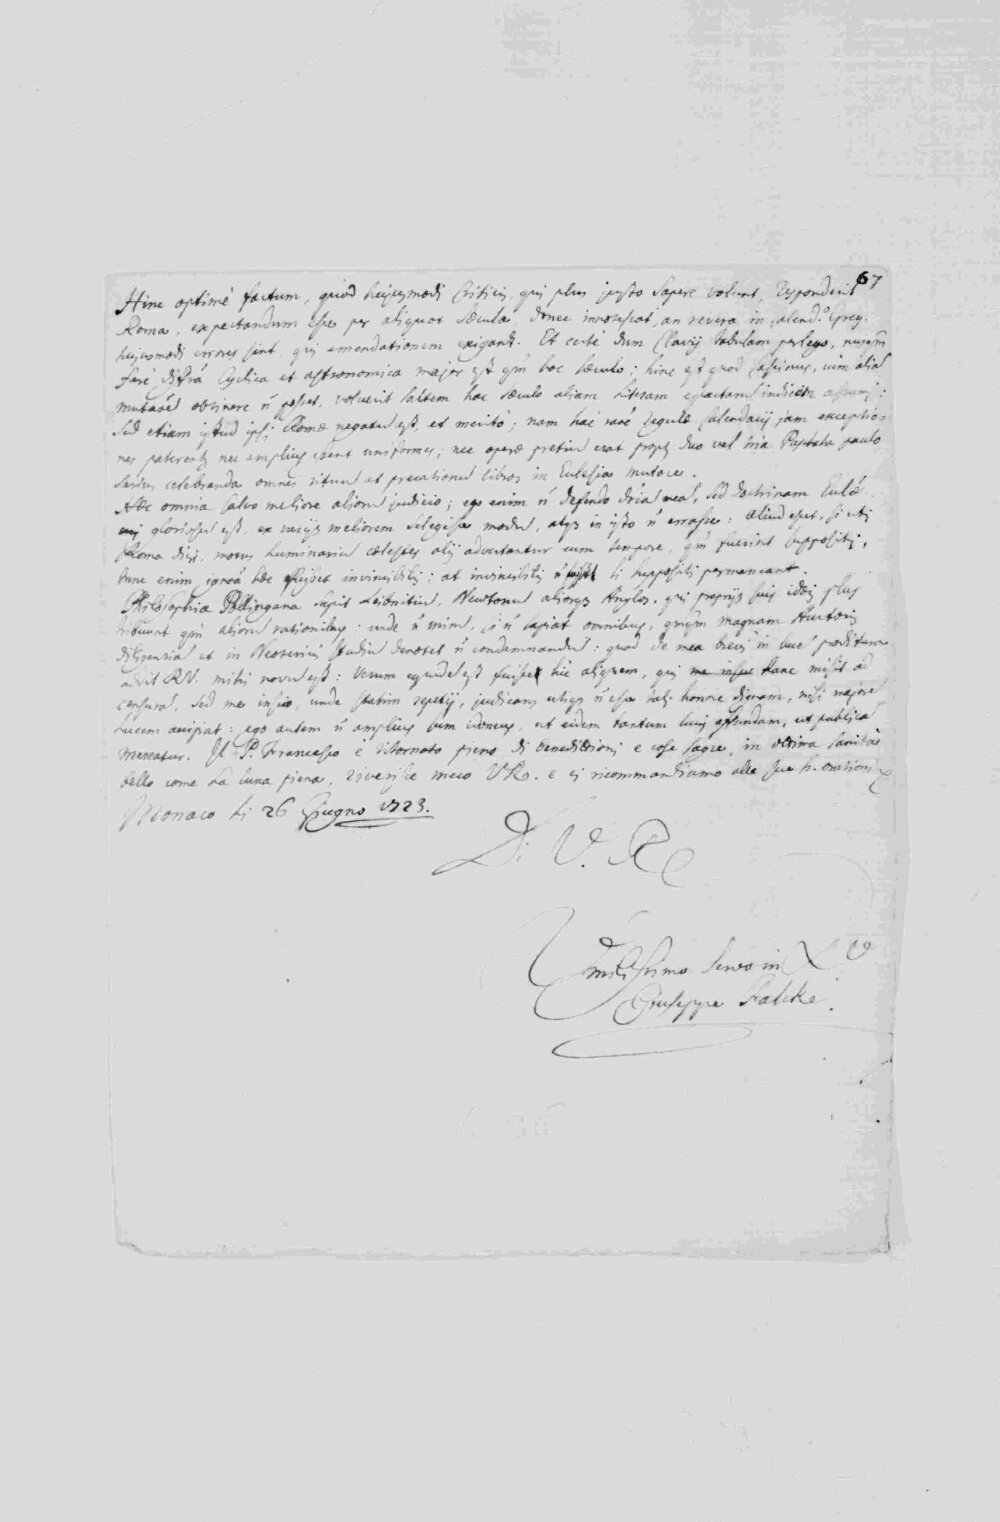 67
Hinc optimè factum, quòd hujusmodi Criticis, qui plus justo sapere volunt, responderit
Roma, expectandum esse per aliquot sæcula, donec innotescat, an revera in Calend.º Greg.
hujusmodi errores sint, qui emendationem exigant. Et certè dum Clavij tabulam perlego, nusquam
ferè difr̃ia Cyclica et astronomica major est qm̃ hoc sæculo; hinc est quod Cassinus, cùm aliã
mutaõẽ obtinere ñ posset, voluerit saltem hoc sæculo aliam literam epactarum indicem assumi:
sed etiam istud ipsi Romæ negatũ est, et meritò; nam hac raõe regulæ Calendarij jam exceptio-
nes paterent nec amplius essent uniformes; nec operæ pretiũ erat propter duo vel tria Paschata paulo
seriùs celebranda omnes ritus et precationũ libros in Ecclesia mutare.
Atq omnia salvo meliore aliorũ judicio; ego enim ñ defendo dr̃ia meã, sed doctrinam Eccl̃æ
cui gloriosũ est, ex varijs meliorem selegisse modũ, atqs in isto ñ errasse: aliud esset, si uti
Roma dixi, motus luminariũ cælestes alij advertantur cum tempore, qm̃ fuerint suppositi,
tunc enim error hic fuisset invincibilis; at invincibilis ñ si suppositi permaneant.
Philosophia Pollingana sapit Leibnitiũ, Newtonũ aliosqs Anglos, qui proprijs suis ideis plus
tribuunt qm̃ aliorũ rationibus: unde ñ mirũ, si ñ sapiat omnibus, qm̃vis magnam Auctoris
diligentiã et in Neotericis studiũ denotet ñ condemnandũ: quod de mea brevi in lucẽ proditura
addit RV. mihi novũ est: verum equidem est fuisse hic aliquem, qui me inscio hanc misit ad
censurã, sed me inscio, unde statim repetij, judicans utiqs ñ esse tali honore dignam, nisi majorẽ
lucem accipiat: ego autem ñ amplius sum idoneus, ut eidem tantum lucis affundam, ut publicã
mereatur. Il P. Francesco è ritornato pieno di benedizioni e cose sagre, in ottima sanità
bello come la luna piena, riverisce meco VR. e ci ricommandiamo alle sue s. orationi
Monaco li 26 Giugno 1723.
Di V. R
Umilissimo servo in X º
Giuseppe Falcke.